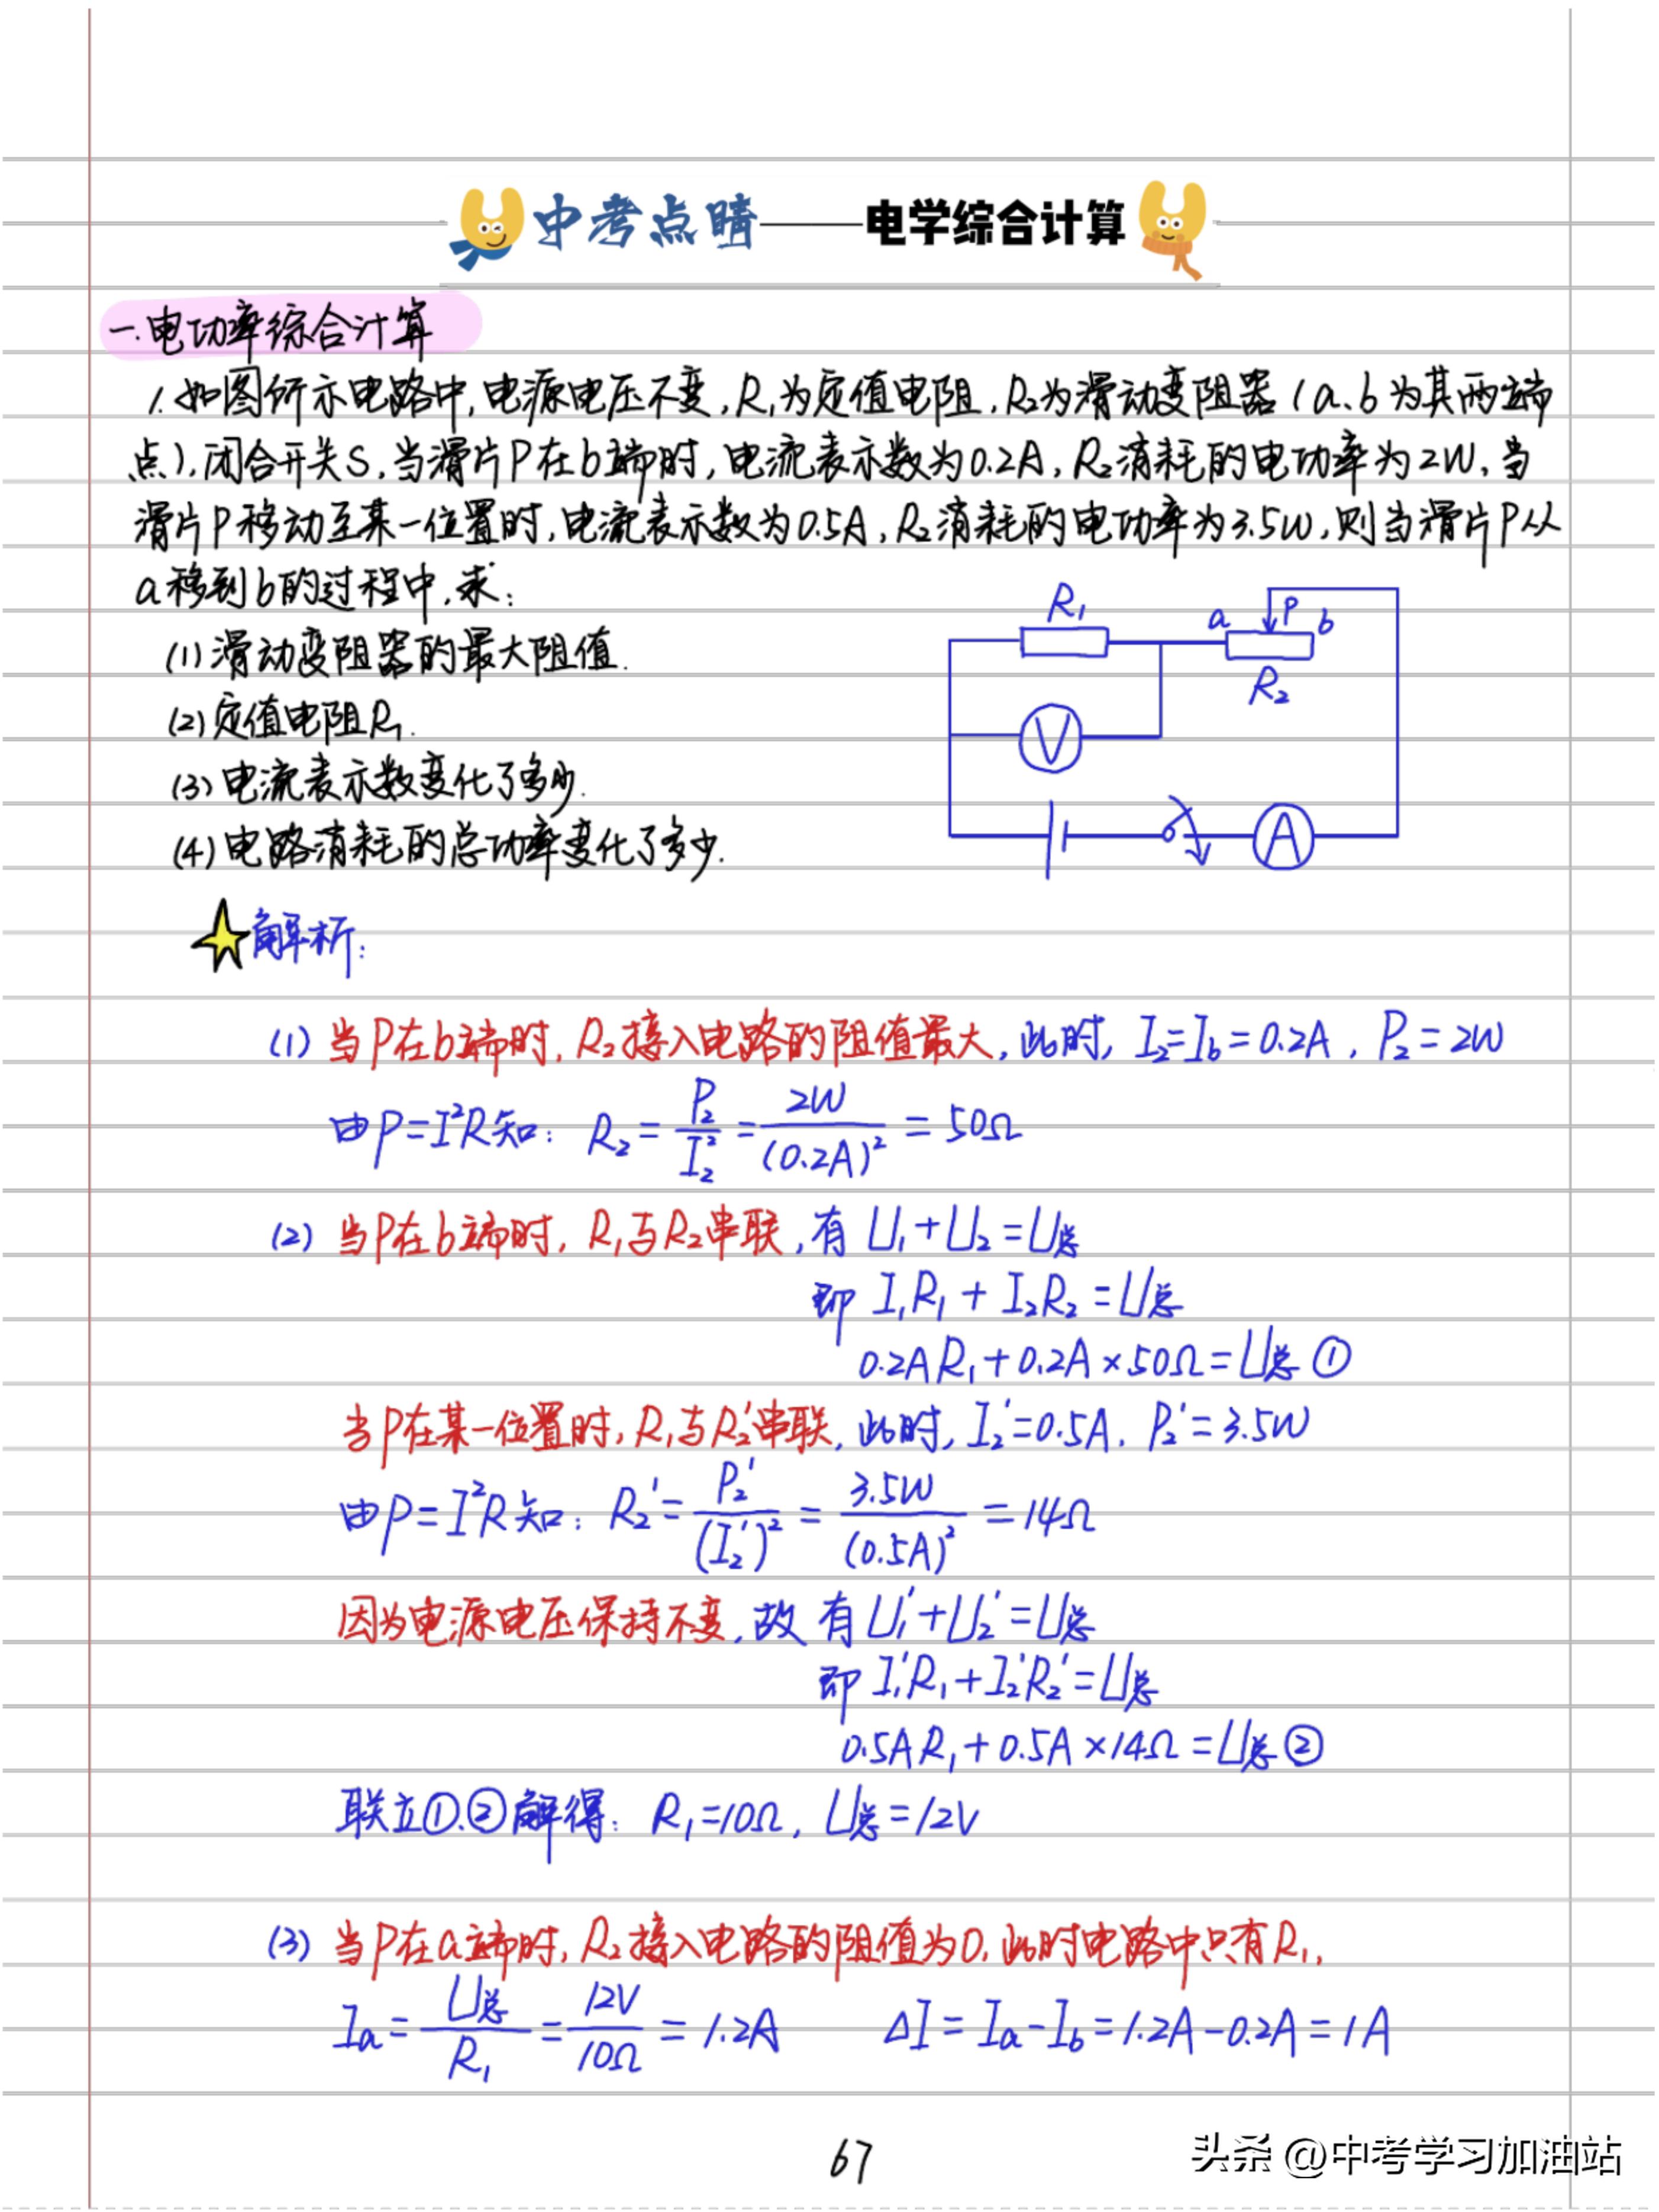 中考点睛——电学综合计算
一.电功率综合计算
1.如图所示电路中,电源电压不变,R₁为定值电阻,R₂为滑动变阻器(a、b为其两端
点),闭合开关S,当滑片P在b端时,电流表示数为0.2A,R₂消耗的电功率为2W,当
滑片P移动至某一位置时,电流表示数为0.5A,R₂消耗的电功率为3.5W,则当滑片P从
a移到b的过程中,求:
(1)滑动变阻器的最大阻值.
(2)定值电阻R₁.
(3)电流表示数变化了多少.
(4)电路消耗的总功率变化了多少.
R₁
a P b
R₂
V
A
解析:
(1) 当P在b端时,R₂接入电路的阻值最大,此时,I₂=I_b=0.2A,P₂=2W
由P=I²R知: R₂=P₂/I₂²=2W/(0.2A)²=50Ω
(2) 当P在b端时,R₁与R₂串联,有 U₁+U₂=U总
即 I₁R₁+I₂R₂=U总
0.2A R₁+0.2A×50Ω=U总 ①
当P在某一位置时,R₁与R₂'串联,此时,I₂'=0.5A,P₂'=3.5W
由P=I²R知: R₂'=P₂'/(I₂')²=3.5W/(0.5A)²=14Ω
因为电源电压保持不变,故有U₁'+U₂'=U总
即 I₁'R₁+I₂'R₂'=U总
0.5A R₁+0.5A×14Ω=U总 ②
联立①.②解得: R₁=10Ω, U总=12V
(3) 当P在a端时,R₂接入电路的阻值为0,此时电路中只有R₁,
Ia=U总/R₁=12V/10Ω=1.2A ΔI=Ia-I_b=1.2A-0.2A=1A
67
头条 @中考学习加油站